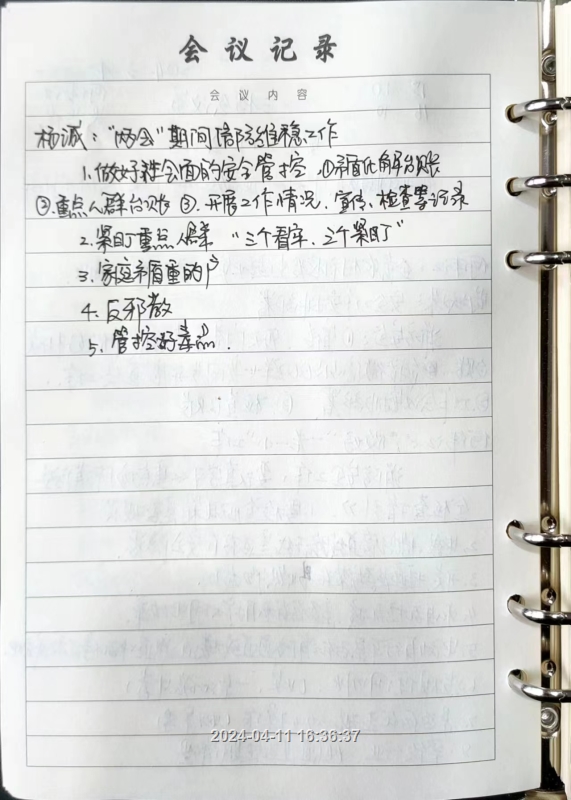 会议记录
会议内容
杨诚："两会"期间信访维稳工作
1.做好社会面的安全管控,①矛盾化解台账
②.重点人群台账 ③.开展工作情况,宣传、检查等记录
2.紧盯重点人群 "三个看牢、三个紧盯"
3.家庭矛盾重的户
4.反邪教
5.管控好毒品.
2024-04-11 16:36:37